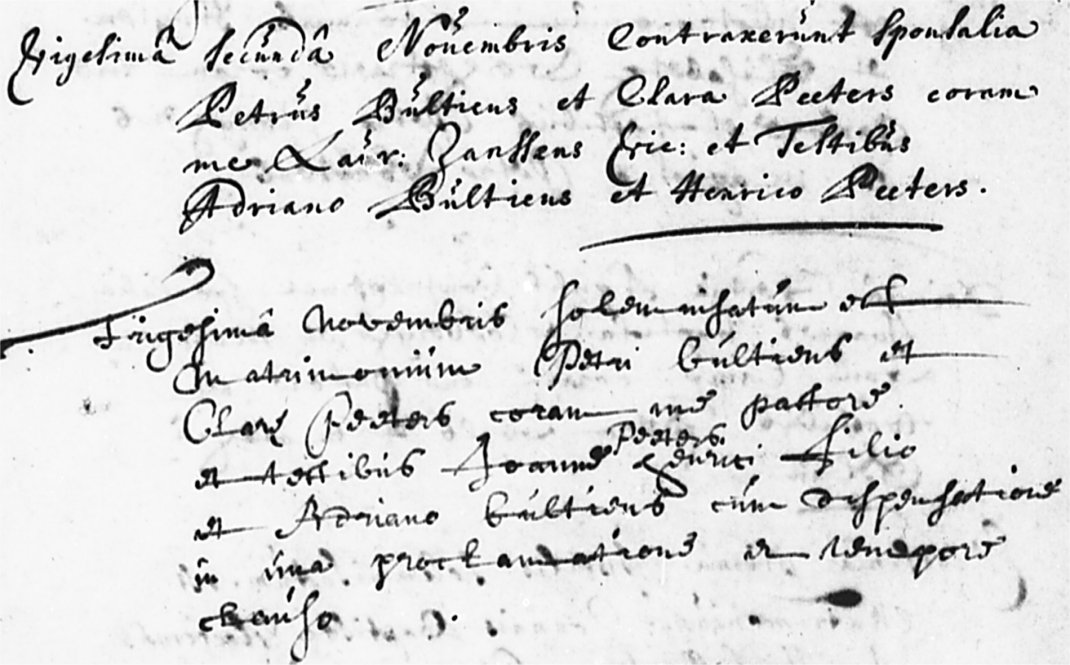 Vigesimâ secundâ Novembris Contraxerunt sponsalia
Petrus Bultiens et Clara Peeters coram
me Laur: Janssens Vic: et Testibus
Adriano Bultiens et Henrico Peeters.
trigesimâ novembris solemnisatum est
matrimonium Petri bultiens et
Clarę Peeters coram me pastore.
et testibus Joanne Peeters Henrici filio
et Adriano bultiens cum dispensatione
in una proclamatione et tempore
clauso.